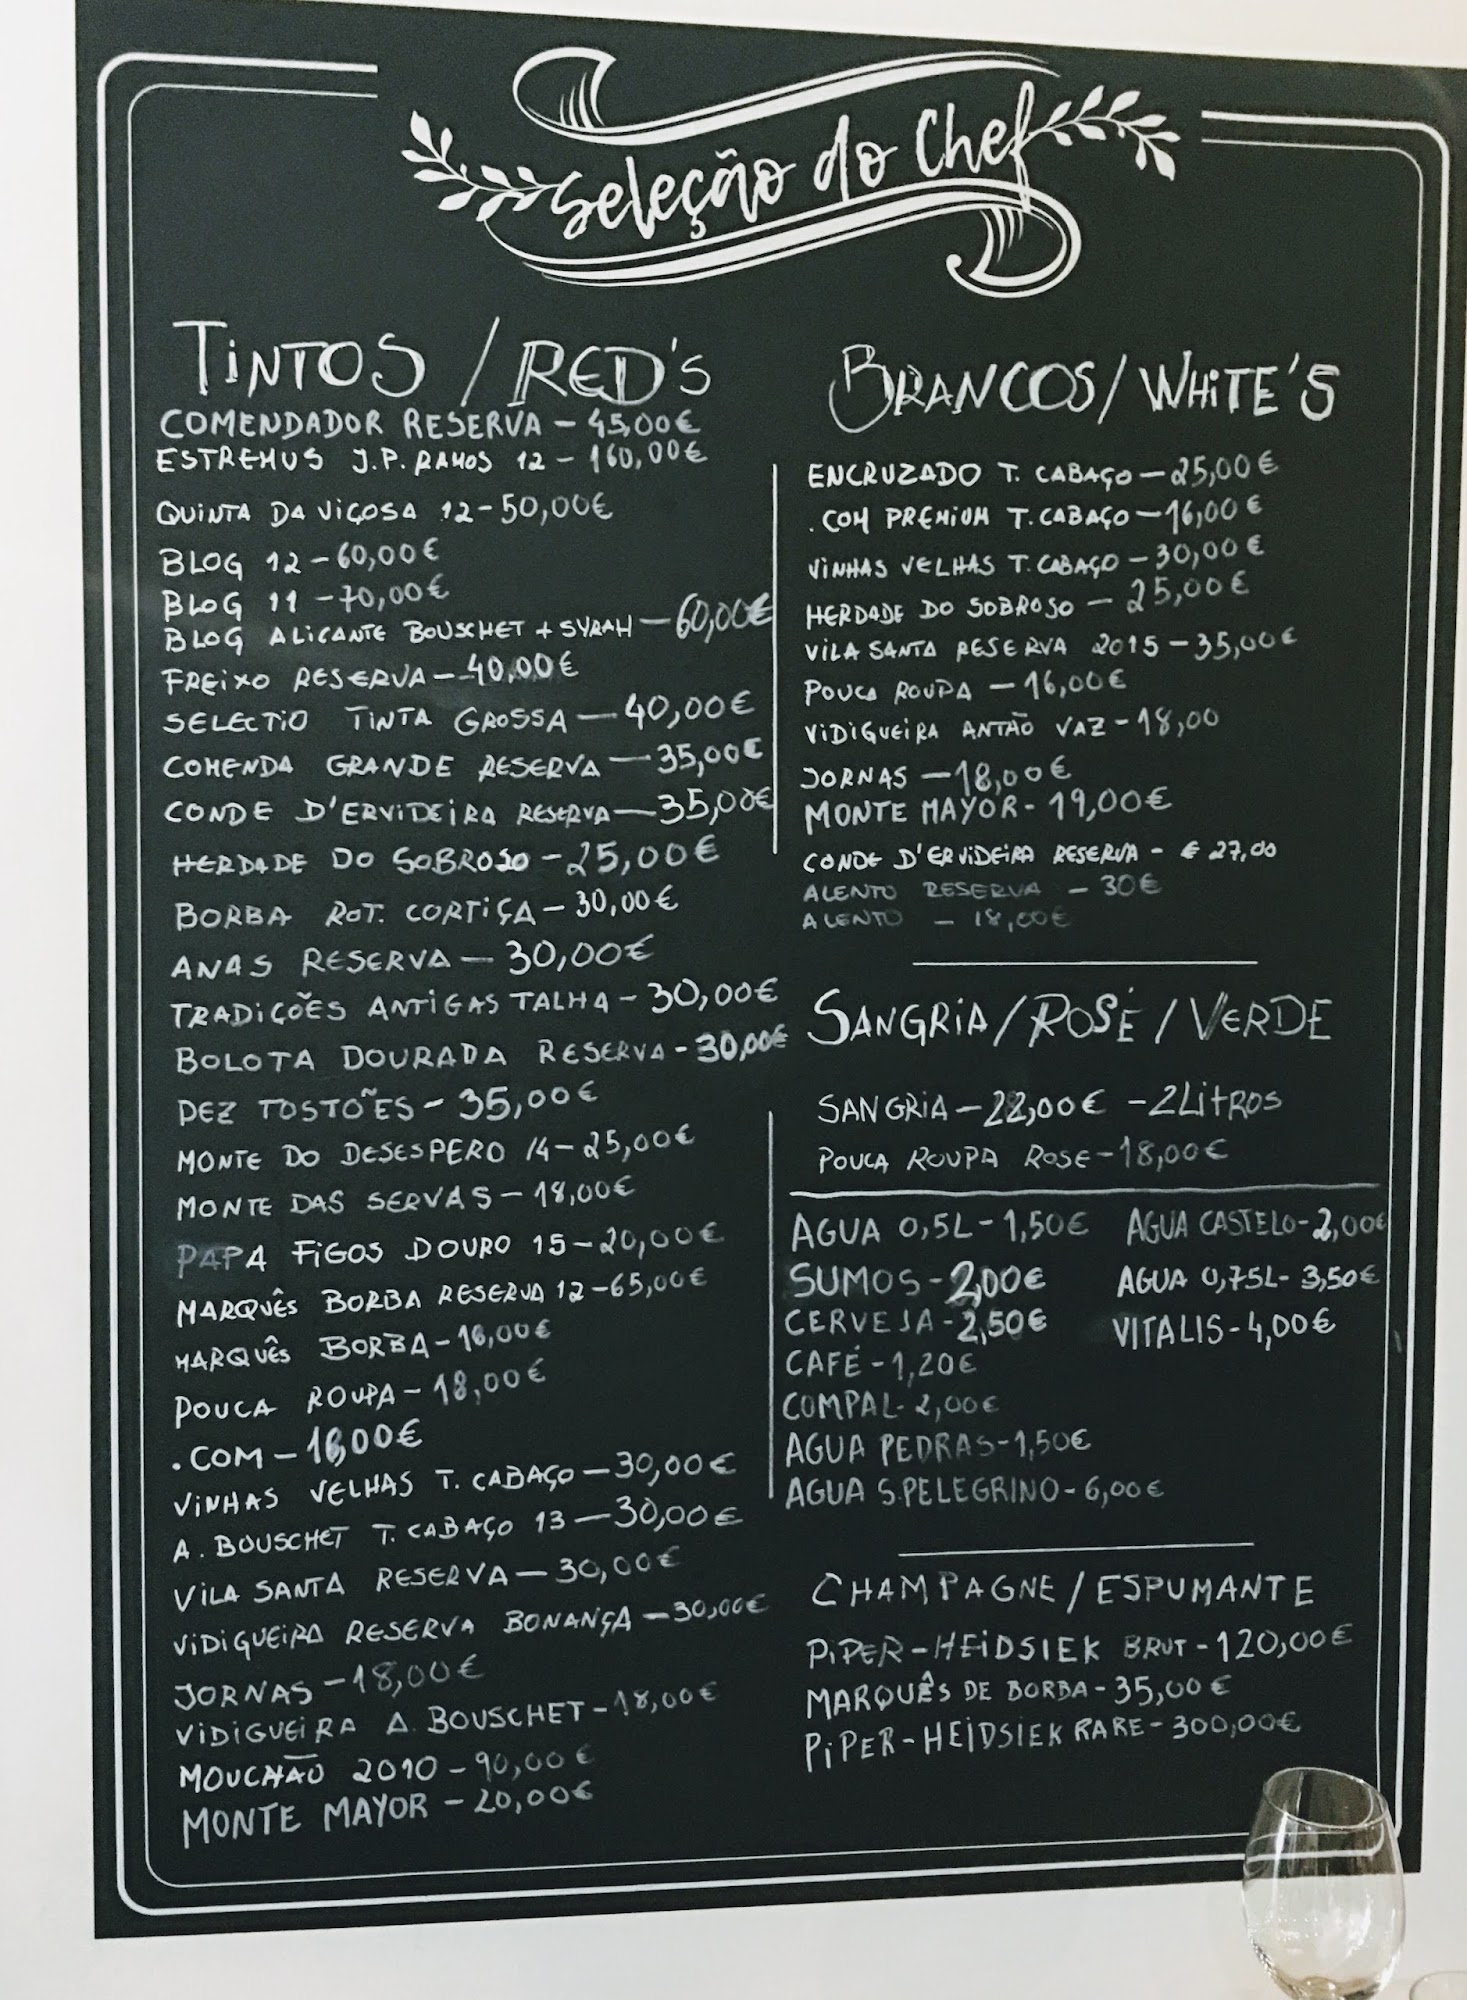 Seleção do Chef
TINTOS / RED'S
COMENDADOR RESERVA - 45,00€
ESTREMUS J.P. RAMOS 12 - 160,00€
QUINTA DA VIÇOSA 12 - 50,00€
BLOG 12 - 60,00€
BLOG 11 - 70,00€
BLOG ALICANTE BOUSCHET + SYRAH - 60,00€
FREIXO RESERVA - 40,00€
SELECTIO TINTA GROSSA - 40,00€
COMENDA GRANDE RESERVA - 35,00€
CONDE D'ERVIDEIRA RESERVA - 35,00€
HERDADE DO SOBROSO - 25,00€
BORBA ROT. CORTIÇA - 30,00€
ANAS RESERVA - 30,00€
TRADIÇÕES ANTIGAS TALHA - 30,00€
BOLOTA DOURADA RESERVA - 30,00€
DEZ TOSTÕES - 35,00€
MONTE DO DESESPERO 14 - 25,00€
MONTE DAS SERVAS - 18,00€
PAPA FIGOS DOURO 15 - 20,00€
MARQUÊS BORBA RESERVA 12 - 65,00€
MARQUÊS BORBA - 16,00€
POUCA ROUPA - 18,00€
.COM - 16,00€
VINHAS VELHAS T. CABAÇO - 30,00€
A. BOUSCHET T. CABAÇO 13 - 30,00€
VILA SANTA RESERVA - 30,00€
VIDIGUEIRA RESERVA BONANÇA - 30,00€
JORNAS - 18,00€
VIDIGUEIRA A. BOUSCHET - 18,00€
MOUCHÃO 2010 - 90,00€
MONTE MAYOR - 20,00€
BRANCOS / WHITE'S
ENCRUZADO T. CABAÇO - 25,00€
.COM PREMIUM T. CABAÇO - 16,00€
VINHAS VELHAS T. CABAÇO - 30,00€
HERDADE DO SOBROSO - 25,00€
VILA SANTA RESERVA 2015 - 35,00€
POUCA ROUPA - 16,00€
VIDIGUEIRA ANTÃO VAZ - 18,00
JORNAS - 18,00€
MONTE MAYOR - 19,00€
CONDE D'ERVIDEIRA RESERVA - € 27,00
ALENTO RESERVA - 30€
ALENTO - 18,00€
SANGRIA / ROSÉ / VERDE
SANGRIA - 22,00€ - 2 LITROS
POUCA ROUPA ROSE - 18,00€
AGUA 0,5L - 1,50€ AGUA CASTELO - 2,00€
SUMOS - 2,00€ AGUA 0,75L - 3,50€
CERVEJA - 2,50€ VITALIS - 4,00€
CAFÉ - 1,20€
COMPAL - 2,00€
AGUA PEDRAS - 1,50€
AGUA S.PELEGRINO - 6,00€
CHAMPAGNE / ESPUMANTE
PIPER-HEIDSIEK BRUT - 120,00€
MARQUÊS DE BORBA - 35,00€
PIPER-HEIDSIEK RARE - 300,00€